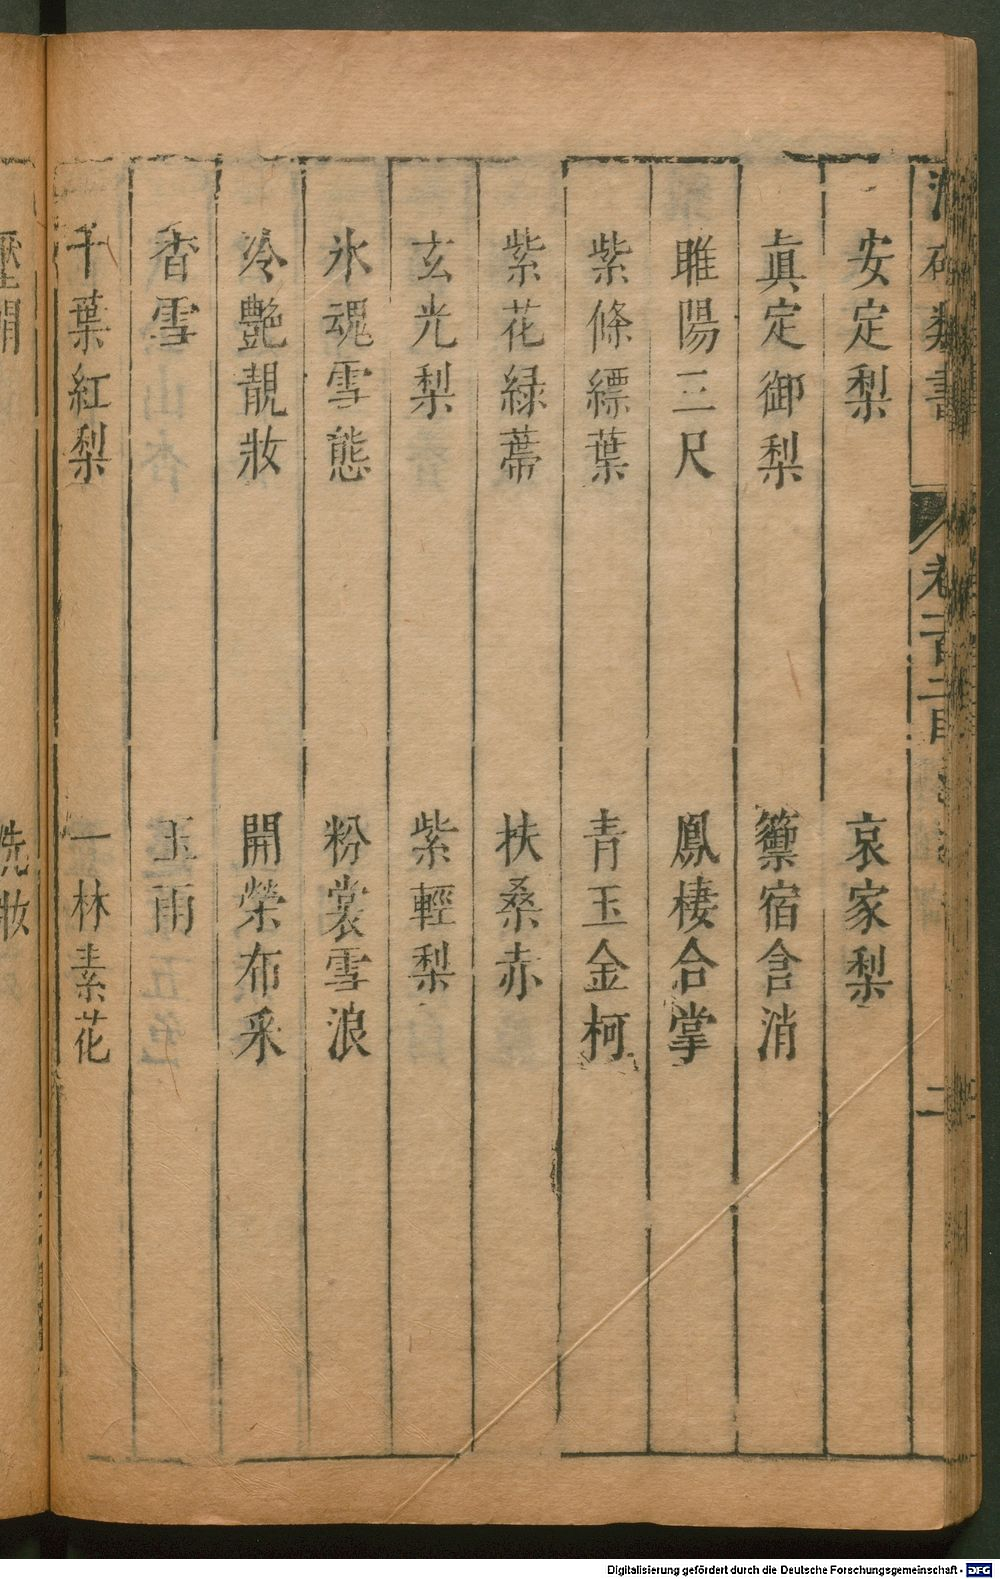 類書 卷一百二目 二
安定梨 哀家梨
眞定御梨 蘌宿含消
睢陽三尺 鳳棲合掌
紫條縹葉 青玉金柯
紫花緑蔕 扶桑赤
玄光梨 紫輕梨
氷魂雪態 粉裳雪浪
冷艷靚妝 開榮布采
香雪 玉雨
千葉紅梨 一林素花
洗妝
Digitalisierung gefördert durch die Deutsche Forschungsgemeinschaft - DFG